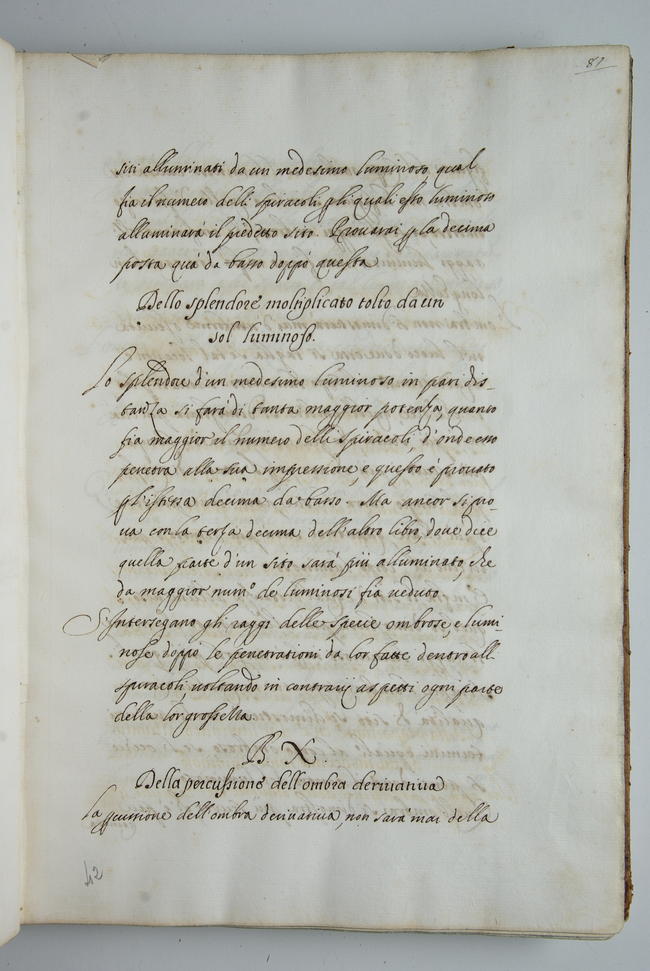 81
siti alluminati da un medesimo luminoso, qual
fia il numero delli spiracoli, p̱ li quali esso luminoso
alluminarà il predetto sito. Provarai p̱ la decima
posta quà da basso doppò questa
Dello splendore moltiplicato tolto da un
sol luminoso.
Lo splendore d'un medesimo luminoso in pari dis-
tanza si farà di tanta maggior potenza, quanto
fia maggior il numero delli spiracoli, d'onde esso
penetra alla sua impressione, e questo è provato
p̱ l'istessa decima da basso. Ma ancor si pro-
va con la terza decima dell'altro libro, dove dice
quella parte d'un sito sarà più alluminato, che
da maggior num.º de luminosi fia veduto.
S'Intersegano gli raggi delle specie ombrose, e lumi-
nose doppò le penetrationi da lor fatte dentro all.
spiracoli, voltando in contrarij aspetti ogni parte
della lor grossezza
B X.
Della percussione dell'ombra derivativa
La p̱cussione dell'ombra derivativa, non sarà mai della
42